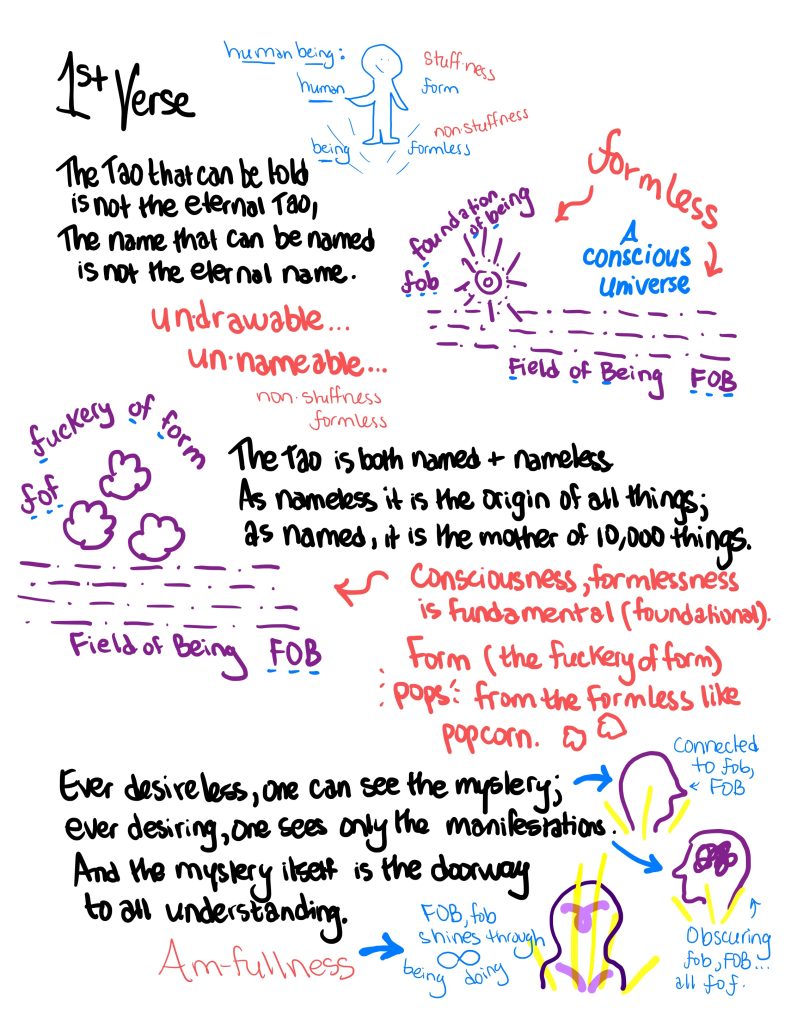 1st Verse
human being:
human
being
stuff·ness
form
non·stuffness
formless
The Tao that can be told
is not the eternal Tao,
The name that can be named
is not the eternal name.
un·drawable...
un·nameable...
non·stuffness
formless
foundation
of being
fob
formless
A
conscious
universe
Field of Being FOB
fuckery of form
fof
Field of Being FOB
The Tao is both named + nameless
As nameless it is the origin of all things;
as named, it is the mother of 10,000 things.
Consciousness, formlessness
is fundamental (foundational).
Form (the fuckery of form)
pops from the formless like
popcorn.
Ever desireless, one can see the mystery;
ever desiring, one sees only the manifestations.
And the mystery itself is the doorway
to all understanding.
Connected
to fob,
FOB
Obscuring
fob, FOB...
all fof.
Am-fullness
FOB, fob
shines through
being doing